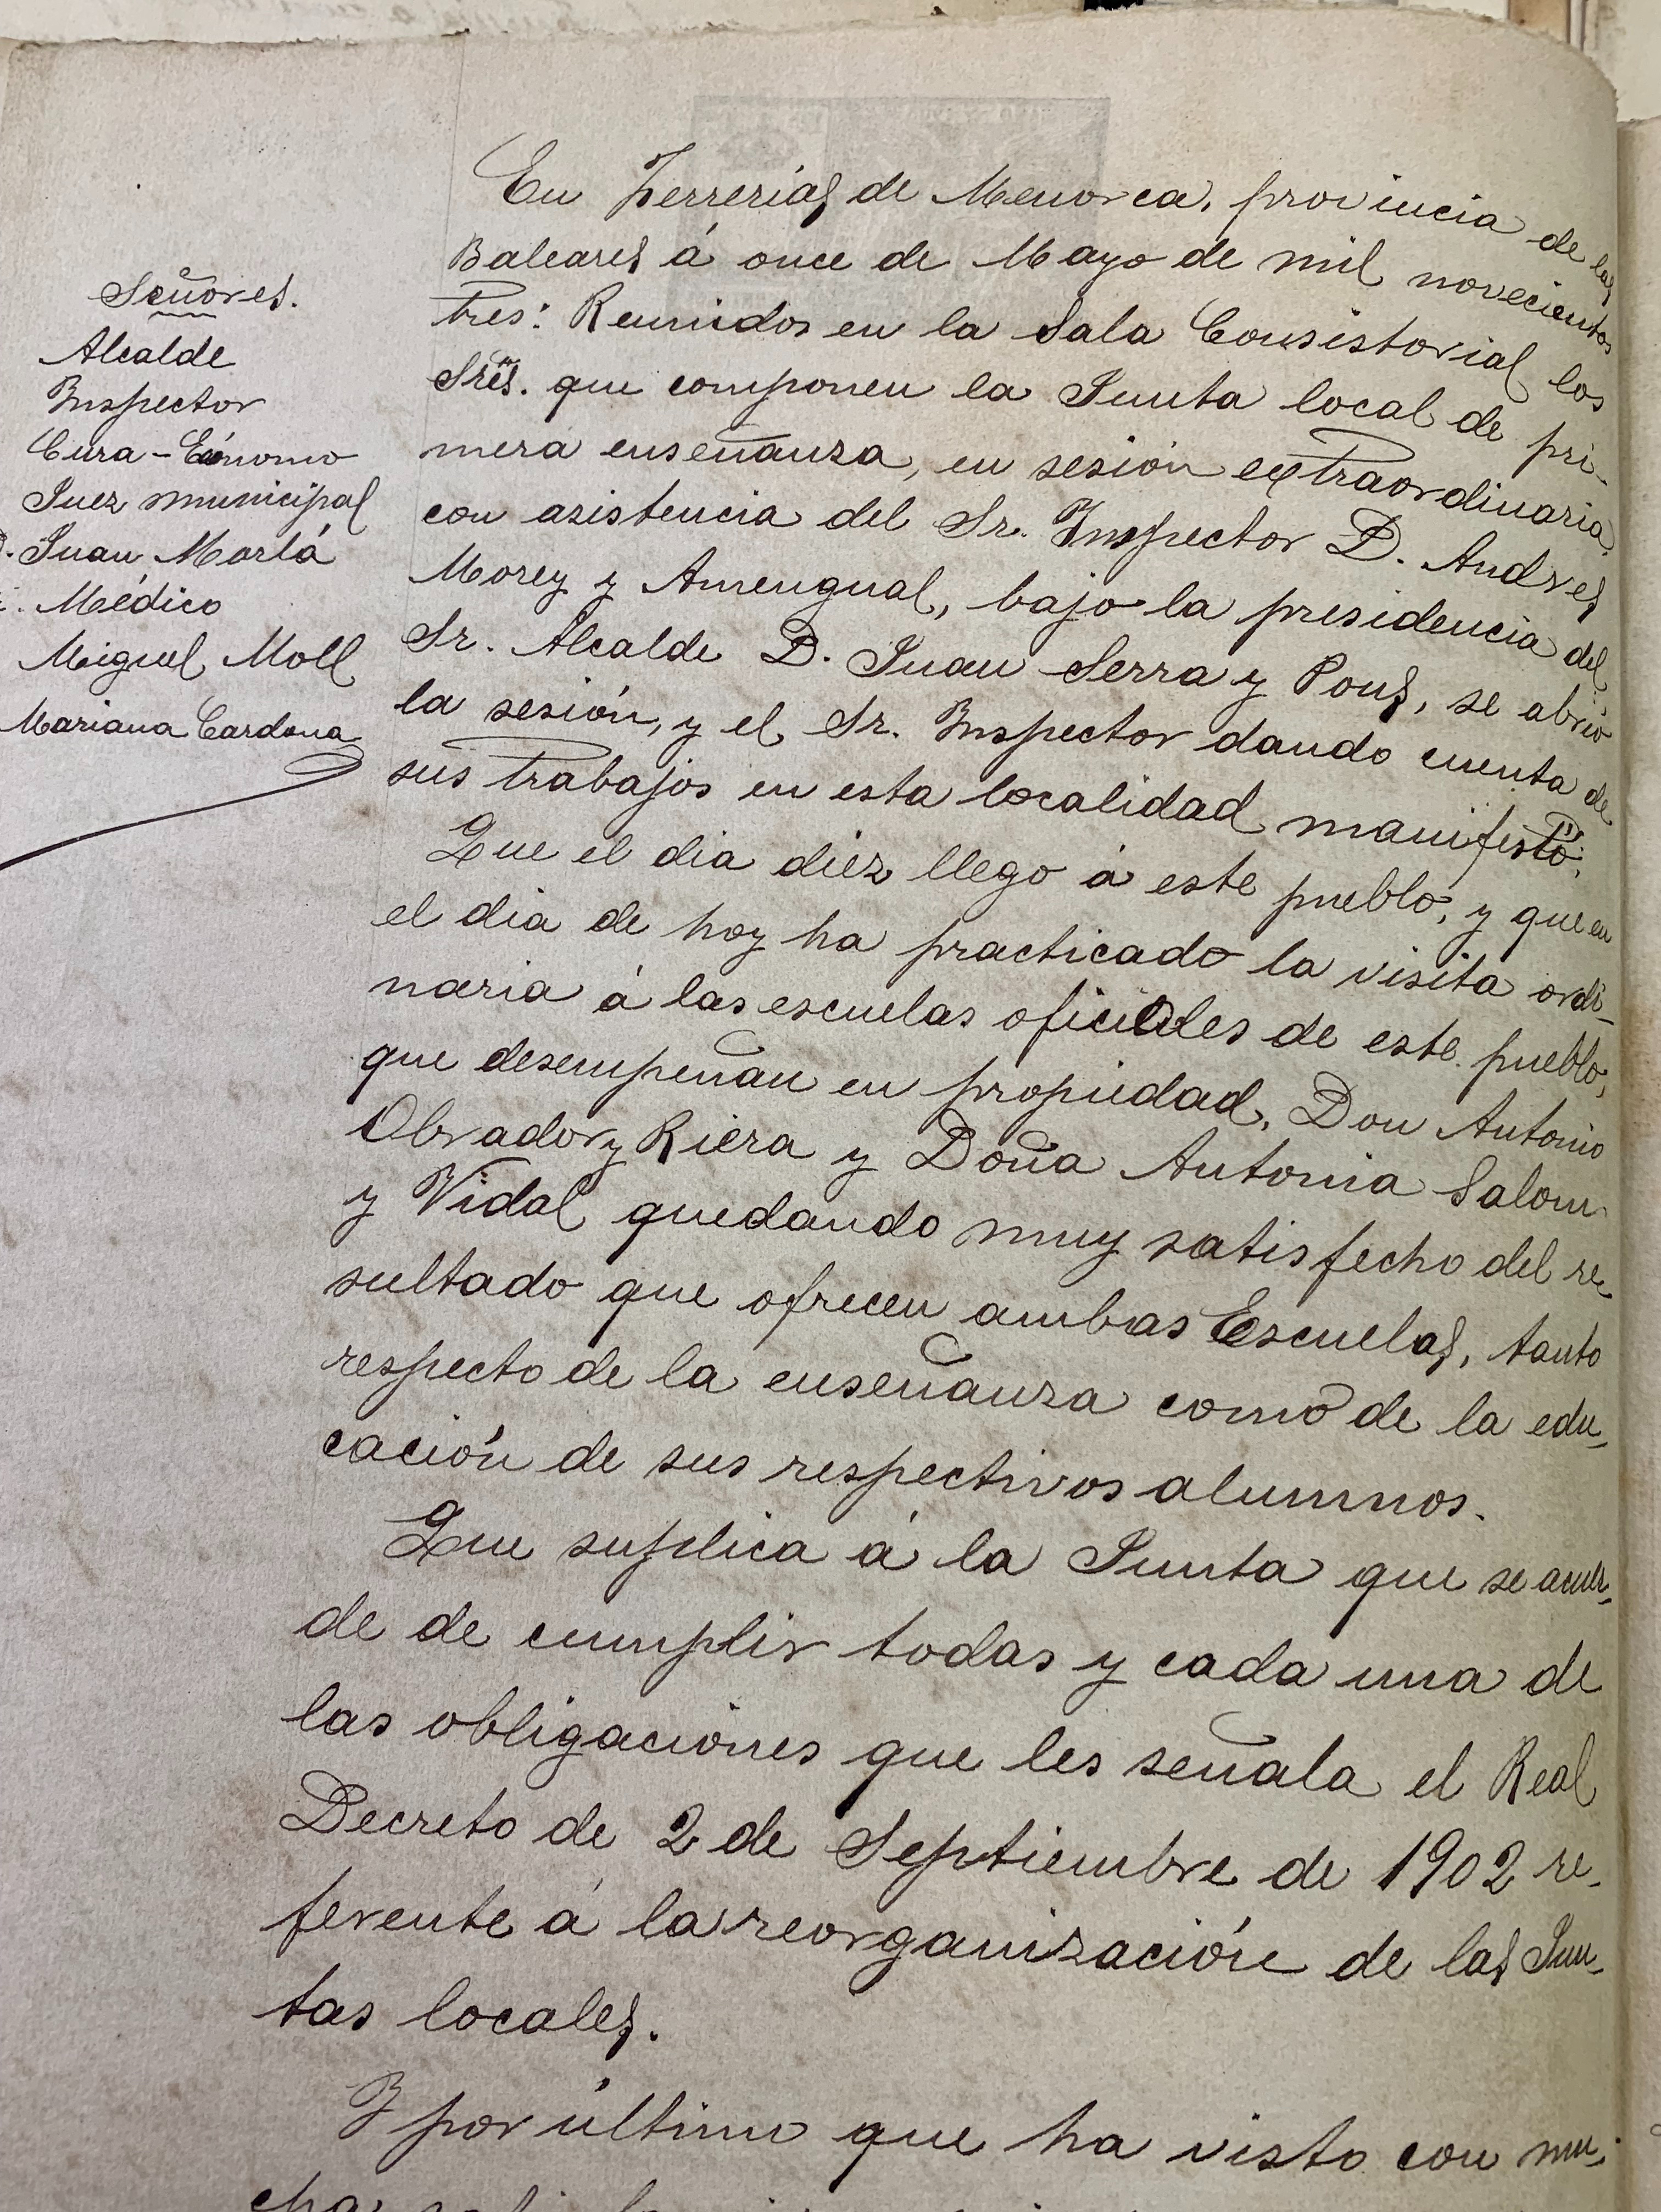 Señores.
Alcalde
Inspector
Cura-Ecónomo
Juez municipal
D. Juan Marlá
Médico
Miguel Moll
Mariana Cardona
En Ferrerias de Menorca, provincia de las
Baleares á once de Mayo de mil novecientos
tres: Reunidos en la Sala Consistorial los
Sres. que componen la Junta local de pri-
mera enseñanza, en sesión extraordinaria,
con asistencia del Sr. Inspector D. Andres
Morey y Amengual, bajo la presidencia del
Sr. Alcalde D. Juan Serra y Pons, se abrió
la sesión, y el Sr. Inspector dando cuenta de
sus trabajos en esta localidad manifestó:
Que el dia diez llego á este pueblo, y que en
el dia de hoy ha practicado la visita ordi-
naria á las escuelas oficiales de este pueblo,
que desempeñan en propiedad, Don Antonio
Obrador y Riera y Doña Antonia Salom
y Vidal quedando muy satisfecho del re-
sultado que ofrecen ambas Escuelas, tanto
respecto de la enseñanza como de la edu-
cación de sus respectivos alumnos.
Que suplica á la Junta que se acuer-
de de cumplir todas y cada una de
las obligaciones que les señala el Real
Decreto de 2 de Septiembre de 1902 re-
ferente á la reorganización de las Jun-
tas locales.
Y por último que ha visto con mu-
cha